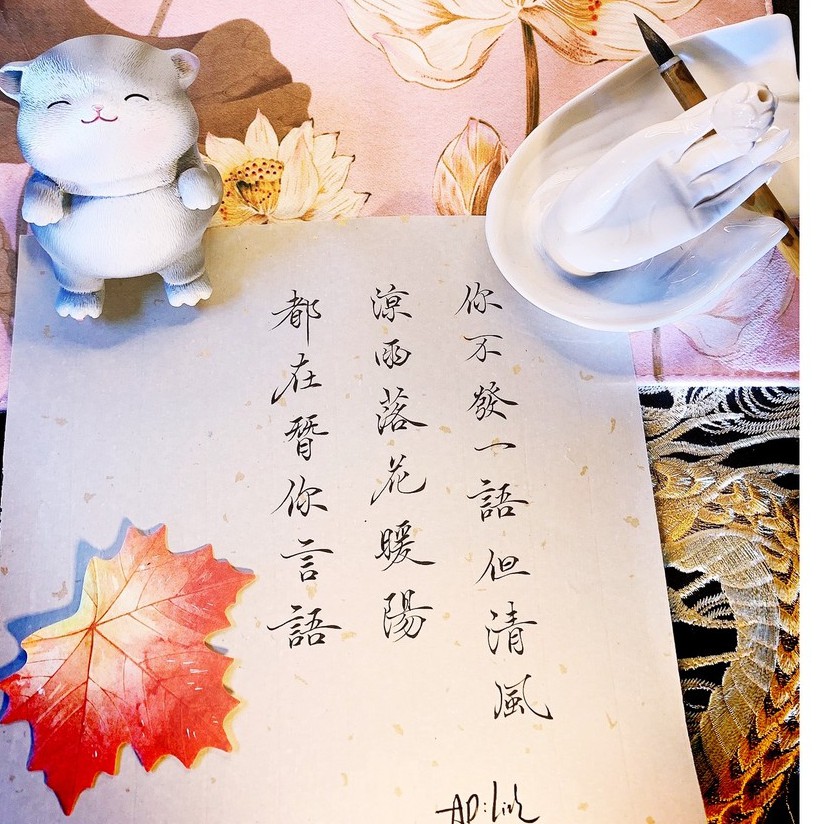 你不發一語但清風
涼雨落花暖陽
都在替你言語